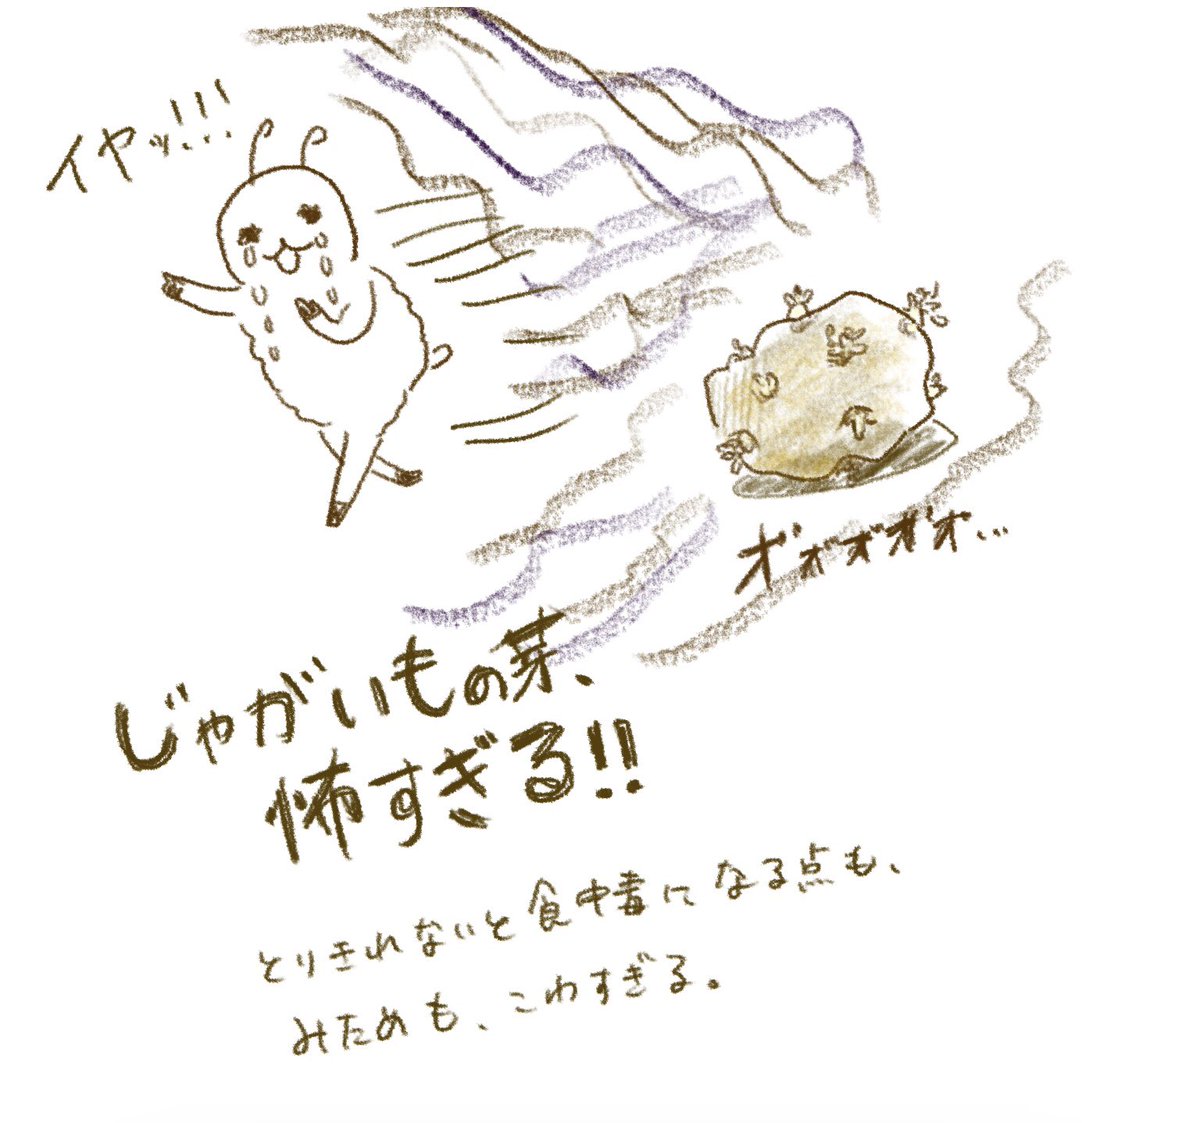 イヤッ!!!
オ゛オ゛オ゛オ゛オ...
じゃがいもの芽、
怖すぎる!!
とりきれないと食中毒になる点も、
みためも、こわすぎる。